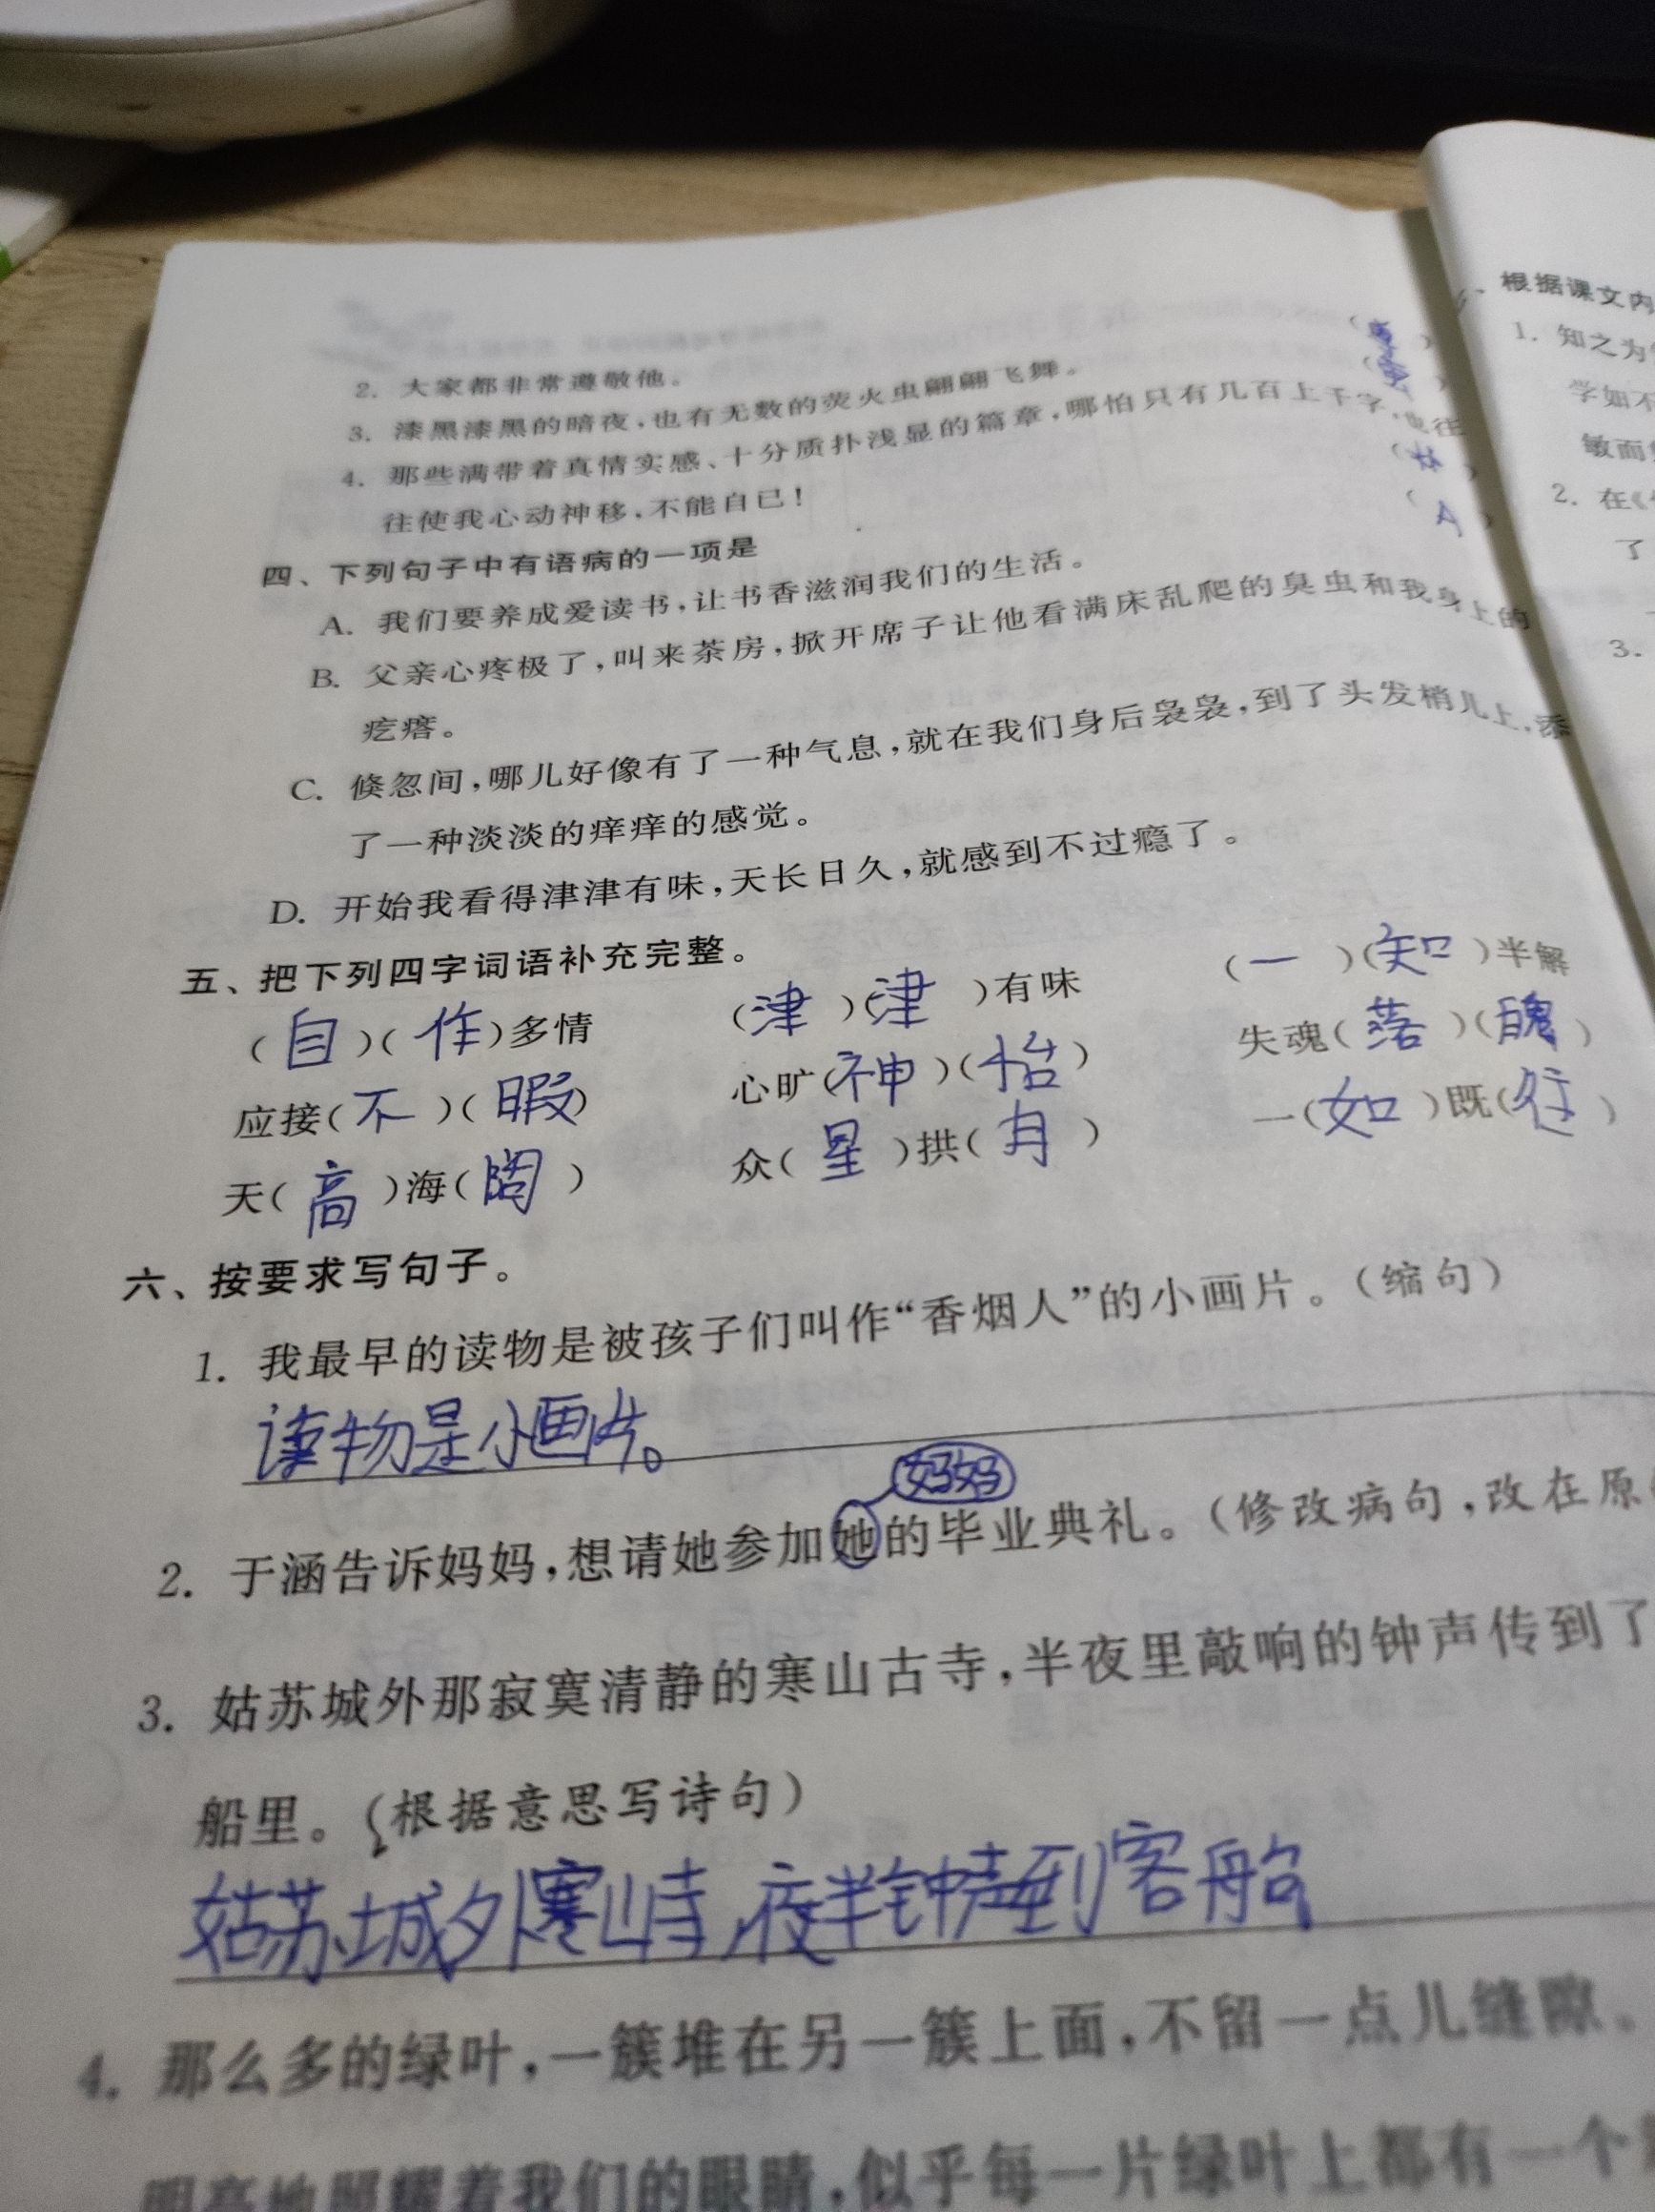 2. 大家都非常遵敬他。
3. 漆黑漆黑的暗夜，也有无数的荧火虫翩翩飞舞。
4. 那些满带着真情实感、十分质扑浅显的篇章，哪怕只有几百上千字，也往
往使我心动神移，不能自已！
( 林 )
四、下列句子中有语病的一项是 ( A )
A. 我们要养成爱读书，让书香滋润我们的生活。
B. 父亲心疼极了，叫来茶房，掀开席子让他看满床乱爬的臭虫和我身上的
疙瘩。
C. 倏忽间，哪儿好像有了一种气息，就在我们身后袅袅，到了头发梢儿上，添
了一种淡淡的痒痒的感觉。
D. 开始我看得津津有味，天长日久，就感到不过瘾了。
五、把下列四字词语补充完整。
( 自 )( 作 )多情 ( 津 )( 津 )有味 ( 一 )( 知 )半解
应接( 不 )( 暇 ) 心旷( 神 )( 怡 ) 失魂( 落 )( 魄 )
天( 高 )海( 阔 ) 众( 星 )拱( 月 ) 一( 如 )既( 往 )
六、按要求写句子。
1. 我最早的读物是被孩子们叫作“香烟人”的小画片。（缩句）
读物是小画片。
妈妈
2. 于涵告诉妈妈，想请她参加她的毕业典礼。（修改病句，改在原
3. 姑苏城外那寂寞清静的寒山古寺，半夜里敲响的钟声传到了
船里。（根据意思写诗句）
姑苏城外寒山寺，夜半钟声到客船
4. 那么多的绿叶，一簇堆在另一簇上面，不留一点儿缝隙。
明亮地照耀着我们的眼睛，似乎每一片绿叶上都有一个
、根据课文内
1. 知之为
学如不
敏而
2. 在《
了
3.